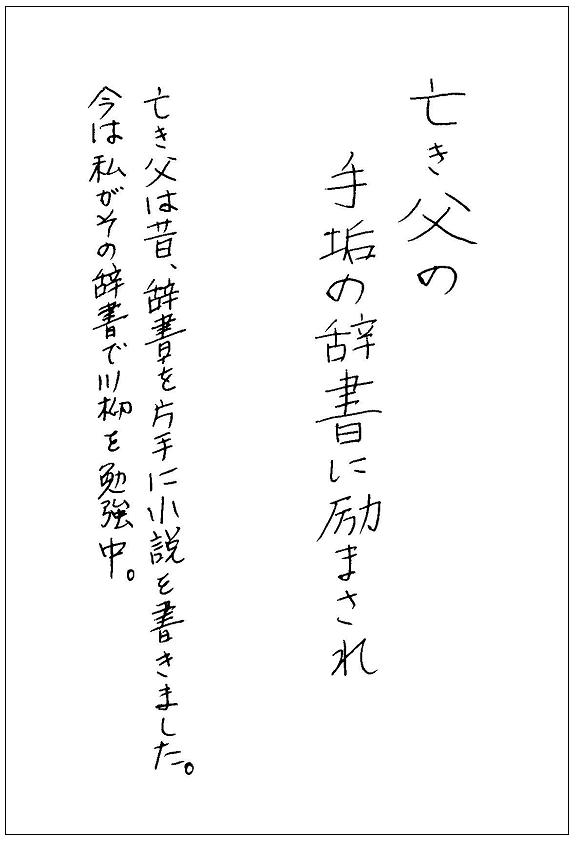 亡き父の
手垢の辞書に励まされ
亡き父は昔、辞書を片手に小説を書きました。
今は私がその辞書で川柳を勉強中。